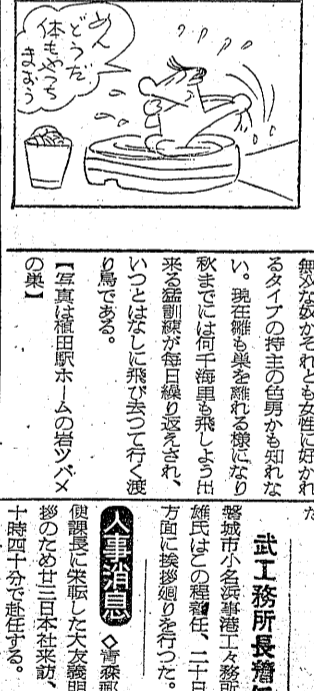 めん
どうだ
体もやっち
まおう
無双な奴かそれとも女性に好かれ
るタイプの持主の色男かも知れな
い。現在雛も巣を離れる様になり
秋までには何千海里も飛しよう出
来る猛訓練が毎日繰り返えされ、
いつとはなしに飛び去つて行く渡
り鳥である。
【写真は植田駅ホームの岩ツバメ
の巣】
た
武工務所長着
磐城市小名浜事港工々務所
雄氏はこの程着任、二十日
方面に挨拶廻りを行つた。
人事消息
◇青森郵
便課長に栄転した大友義明
拶のため廿三日本社来訪、
十時四十分で赴任する。